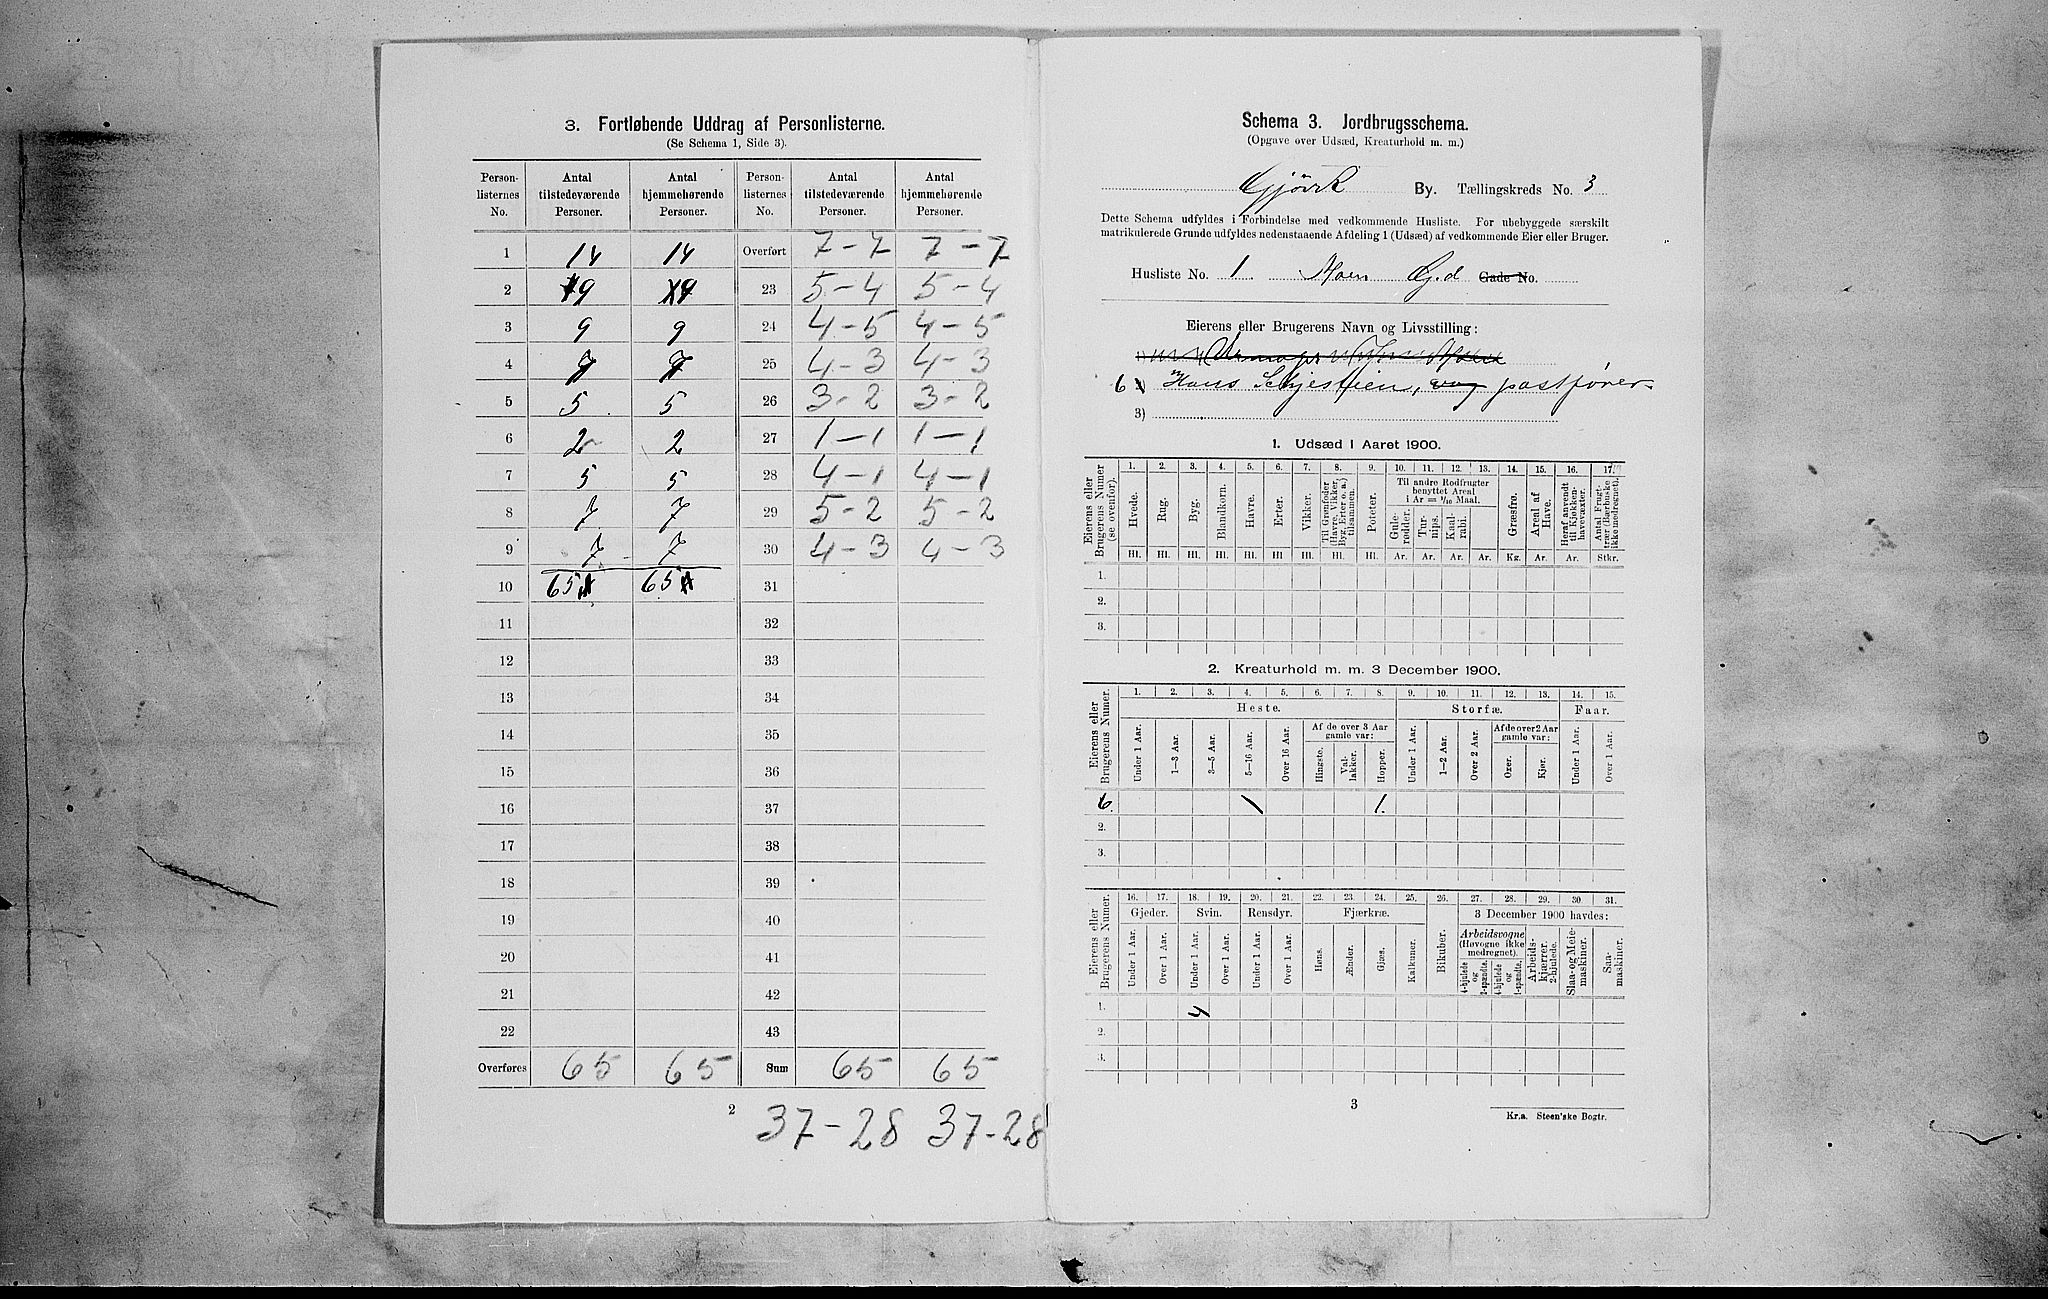 3. Fortløbende Uddrag af Personlisterne.
(Se Schema 1, Side 3).
Person-listernes No. | Antal tilstedeværende Personer. | Antal hjemmehørende Personer. | Person-listernes No. | Antal tilstedeværende Personer. | Antal hjemmehørende Personer.
1 14 14 Overført 7-7 7-7
2 9 9 23 5-4 5-4
3 9 9 24 4-5 4-5
4 7 7 25 4-3 4-3
5 5 5 26 3-2 3-2
6 2 2 27 1-1 1-1
7 5 5 28 4-1 4-1
8 7 7 29 5-2 5-2
9 7 7 30 4-3 4-3
10 65 65 31
11 32
12 33
13 34
14 35
15 36
16 37
17 38
18 39
19 40
20 41
21 42
22 43
Overføres 65 65 Sum 65 65
2
37-28 37-28
Schema 3. Jordbrugsschema.
(Opgave over Udsæd, Kreaturhold m. m.)
Gjøvik By. Tællingskreds No. 3
Dette Schema udfyldes i Forbindelse med vedkommende Husliste. For ubebyggede særskilt
matrikulerede Grunde udfyldes nedenstaaende Afdeling 1 (Udsæd) af vedkommende Eier eller Bruger.
Husliste No. 1 Moen Gd Gade No.
Eierens eller Brugerens Navn og Livsstilling:
6 Hans Schjestien, postfører
3)
1. Udsæd i Aaret 1900.
Eierens eller Brugerens Numer (se ovenfor).
1. 2. 3. 4. 5. 6. 7. 8. 9. 10. 11. 12. 13. 14. 15. 16. 17.
Til andre Rodfrugter benyttet Areal i Ar = 1/10 Maal.
Hvede. Rug. Byg. Blandkorn. Havre. Erter. Vikker. Til Grønfoder (Havre, Vikker, Byg, Erter o. a.) tilsammen. Poteter. Gule-rødder. Tur-nips. Kaal-rabi. Græsfrø. Areal af Have. Heraf anvendt til Kjøkken-havevæxter. Antal Frugt-trær (Bærbuske ikke medregnet).
Hl. Hl. Hl. Hl. Hl. Hl. Hl. Hl. Hl. Ar. Ar. Ar. Ar. Kg. Ar. Ar. Stkr.
1.
2.
3.
2. Kreaturhold m. m. 3 December 1900.
Eierens eller Brugerens Numer.
1. 2. 3. 4. 5. 6. 7. 8. 9. 10. 11. 12. 13. 14. 15.
Heste. Storfæ. Faar.
Af de over 3 Aar gamle var: Af de over 2 Aar gamle var:
Under 1 Aar. 1-3 Aar. 3-5 Aar. 5-16 Aar. Over 16 Aar. Hingste. Val-lakker. Hopper. Under 1 Aar. 1-2 Aar. Over 2 Aar. Oxer. Kjør. Under 1 Aar. Over 1 Aar.
6. 1 1.
2.
3.
Eierens eller Brugerens Numer.
16. 17. 18. 19. 20. 21. 22. 23. 24. 25. 26. 27. 28. 29. 30 31.
Gjeder. Svin. Rensdyr. Fjærkræ. 3 December 1900 havdes:
Arbeidsvogne (Høvogne ikke medregnet).
Under 1 Aar. Over 1 Aar. Under 1 Aar. Over 1 Aar. Under 1 Aar. Over 1 Aar. Høns. Ænder. Gjæs. Kalkuner. Bikuber. 4-hjulede og 2-spændte. 4-hjulede og 1-spændte. Arbeids-kjærrer. 2-hjulede. Slaa- og Meie-maskiner. Saa-maskiner.
1. 4
2.
3.
3
Kr.a. Steen'ske Bogtr.